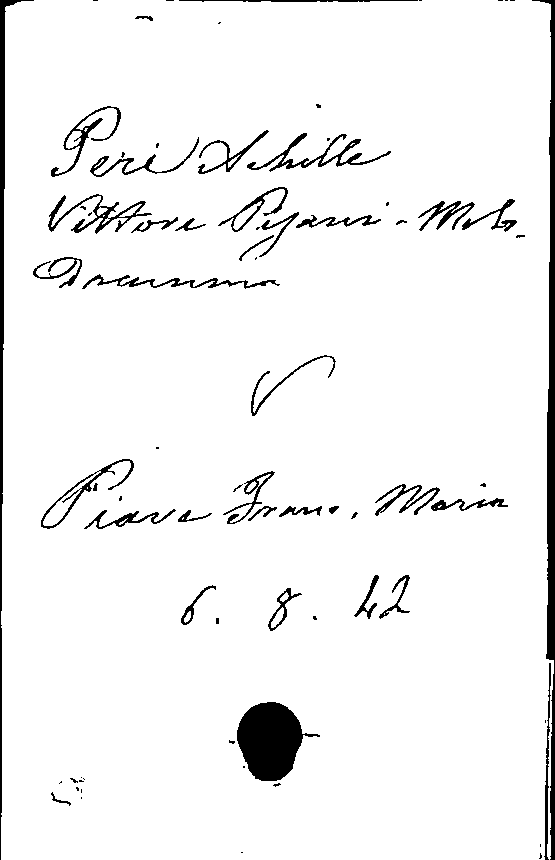 Peri Achille
Vittore Pisani - Melo-
Dramma
V
Piave Franc. Maria
6. 8. 42